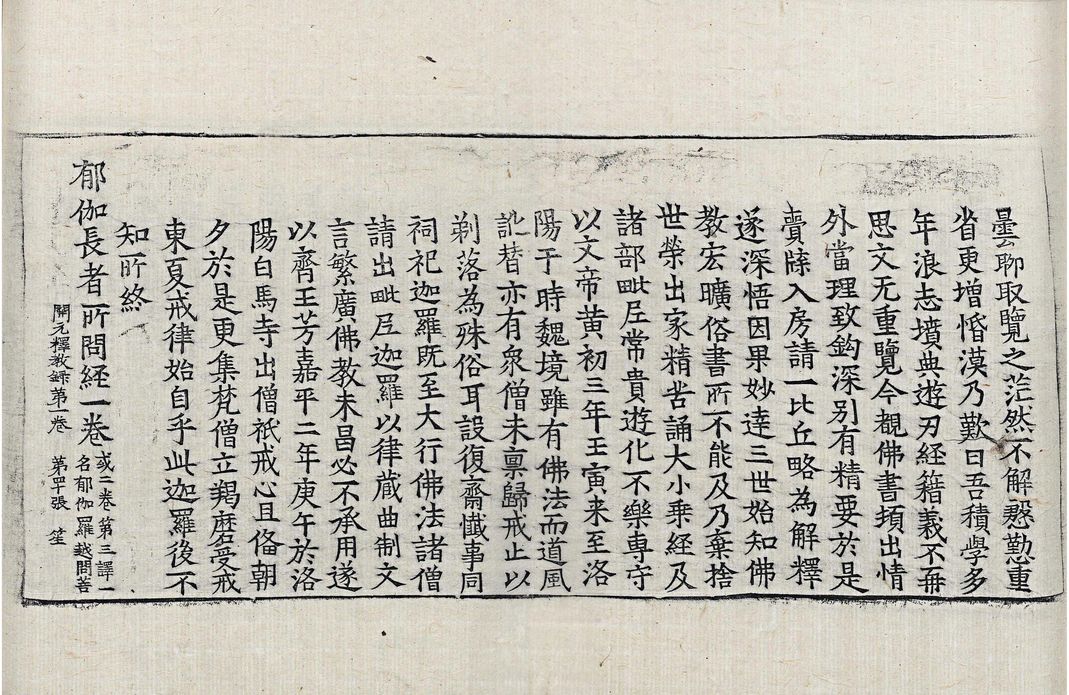 曇聊取覽之茫然不解慇懃重
省更增惛漠乃歎曰吾積學多
年浪志墳典遊刃經籍義不再
思文无重覽今覩佛書頓出情
外當理致鈎深別有精要於是
賷牒入房請一比丘略為解釋
遂深悟因果妙達三世始知佛
教宏曠俗書所不能及乃棄捨
世榮出家精苦誦大小乗經及
諸部毗尼常貴遊化不樂専守
以文帝黄初三年壬寅来至洛
陽于時魏境雖有佛法而道風
訛替亦有衆僧未禀歸戒止以
剃落為殊俗耳設復齋懺事同
祠祀迦羅既至大行佛法諸僧
請出毗尼迦羅以律藏曲制文
言繁廣佛教未昌必不承用遂
以齊王芳嘉平二年庚午於洛
陽白馬寺出僧祇戒心且俻朝
夕於是更集梵僧立羯磨受戒
東夏戒律始自乎此迦羅後不
知所終
郁伽長者所問經一卷 或二卷第三譯一名郁伽羅越問菩
開元釋教録第一卷 第四十張 笙